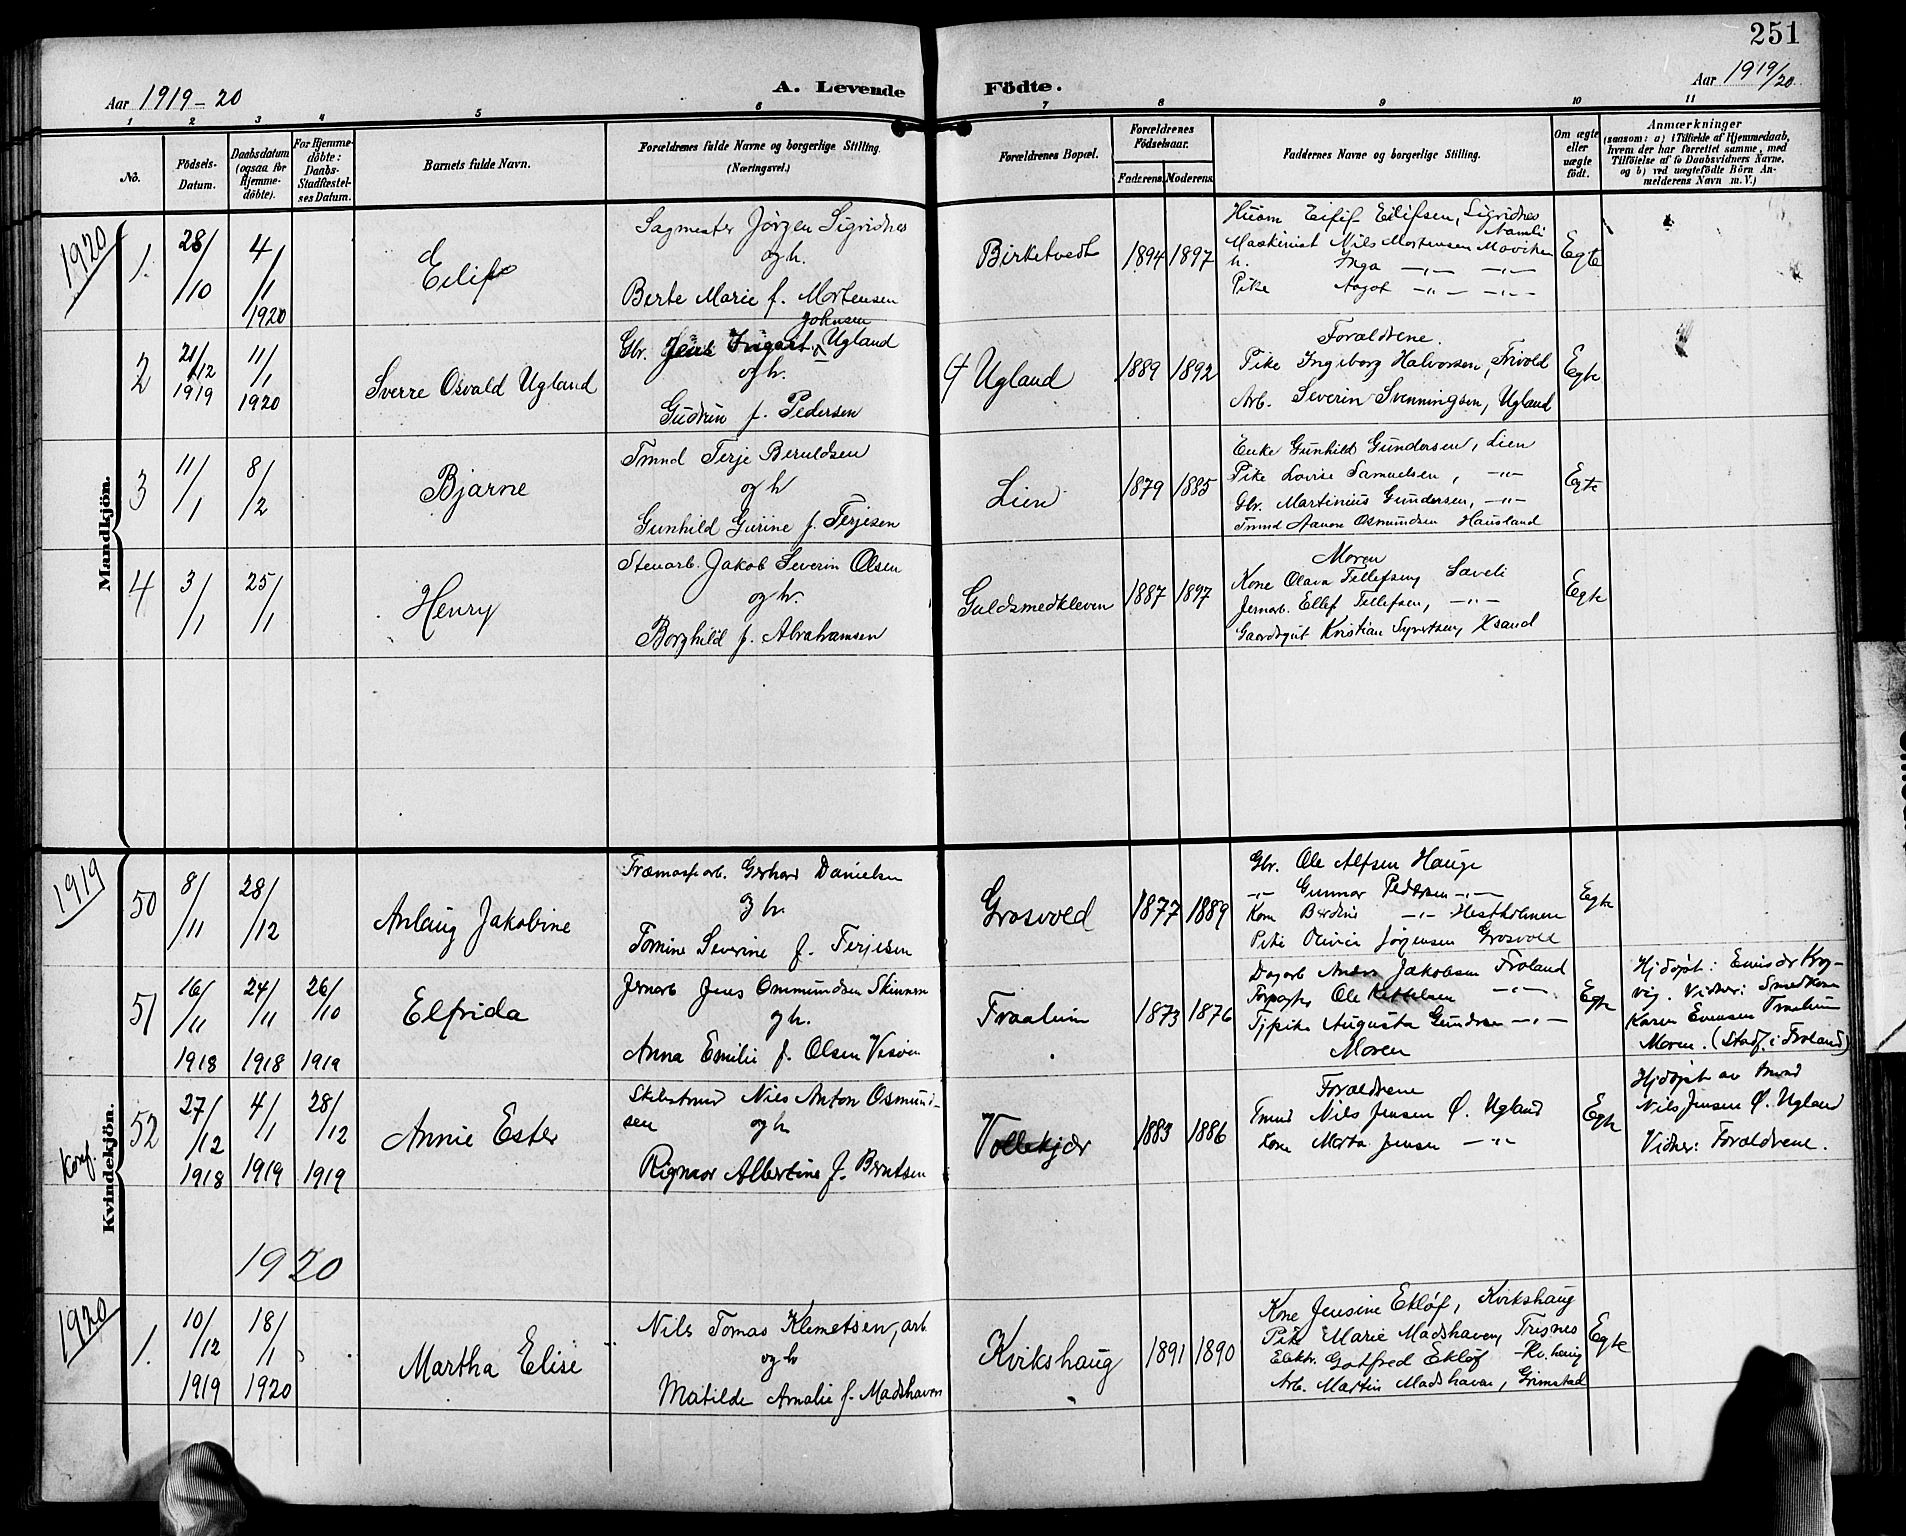 251
Aar 1919-20
A. Levende
Födte.
Aar 1919/20
1 2 3 4 5 6 7 8 9 10 11
No.
Födsels-Datum.
Daabsdatum (ogsaa for Hjemmedöbte).
For Hjemmedöbte: Daabs-Stadfæstelses Datum.
Barnets fulde Navn.
Forældrenes fulde Navne og borgerlige Stilling. (Næringsvei.)
Forældrenes Bopæl.
Forældrenes Födselsaar.
Faderens. Moderens.
Faddernes Navne og borgerlige Stilling.
Om ægte eller uægte födt.
Anmærkninger
(saasom: a) i Tilfælde af Hjemmedaab, hvem der har forrettet samme, med Tilföielse af to Daabsvidners Navne, og b) ved uægtefödte Börn Anmelderens Navn m. V.)
Mandkjön.
1920
1. 28/10 4/1 1920
Eilif
Sagmester Jörgen Sigridnes
og h.
Berte Marie f. Mortensen
Birketvedt 1894 1897
Husm Eilif Eilifsen, Sigridnes
Maskinist Nils Mortensen Moviken
h. Inga -"- -"-
Pike Aagot -"- -"-
Egte
2 21/12 1919 11/1 1920
Sverre Osvald Ugland
Johnsen
Gbr. Ugland
og h.
Gudrun f. Pedersen
Ugland 1889 1892
Forældrene.
Pike Ingeborg Halvorsen, Trivold
Arb. Severin Svenningsen, Ugland
Egte
3 11/1 8/2
Bjarne
Tmnd Terje Beruldsen
og h
Gunhild Gurine f. Terjesen
Lien 1879 1885
Enke Gunhild Gundersen, Lien
Pike Lovise Samuelsen, -"-
Gbr. Martinius Gundersen, -"-
Tmnd Aanon Osmundsen Hausland
Egte
4 3/1 25/1
Henry
Stenarb. Jakob Severin Olsen
og h.
Borghild f. Abrahamsen
Guldsmedkleven 1887 1897
Moren
Kone Olava Tellefsen, Saveli
Jernarb. Ellef Tellefsen, -"-
Gaardsgut Kristian Syvertsen, Xsand
Egte
Kvindekjön.
1919
50 8/11 28/12
Anlaug Jakobine
Træmasfarb. Gerhard Danielsen
og h.
Tomine Severine f. Terjesen
Grosvold 1877 1889
Gbr. Ole Alfsen Hauge
-"- Gunnar Pedersen -"-
Kone Berdine -"- Hestholmen
Pike Olivia Jörgensen Grosvold
Egte
51 16/11 1918 24/11 1918 26/10 1919
Elfrida
Jernarb Jens Ommundsen Skinnern
og h.
Anna Emilie f. Olsen
Fraalum 1873 1876
Dagarb Anders Jakobsen Froland
Forpagter Ole Kittelsen -"-
Tjpike Augusta Gundersen -"-
Moren
Egte
Hjdøpt: Emisær
Vidner: Smedkone
Karen Evensen Fraalum
Moren. (Stadf. i Froland)
Konf.
52 27/12 1918 4/1 1919 28/12 1919
Annie Ester
Skibstmd Nils Anton Osmund-
sen og h
Rigmor Albertine f. Berntsen
Vollekjær 1883 1886
Forældrene
Tmnd Nils Jensen Ø. Ugland
Kone Marta Jensen -"-
Egte
Hjdøpt av tmnd
Nils Jensen Ø. Ugland
Vidner: Forældrene.
1920
1920
1. 10/12 1919 18/1 1920
Martha Elise
Nils Tomas Klemetsen, arb
og h
Matilde Amalie f. Madshaven
Kvikshaug 1891 1890
Kone Jensine Ekløf, Kvikshaug
Pike Marie Madshaven, Trisnes
Elektr. Gotfred Ekløf -Kv.haug
Arb. Martin Madshaven, Grimstad
Egte